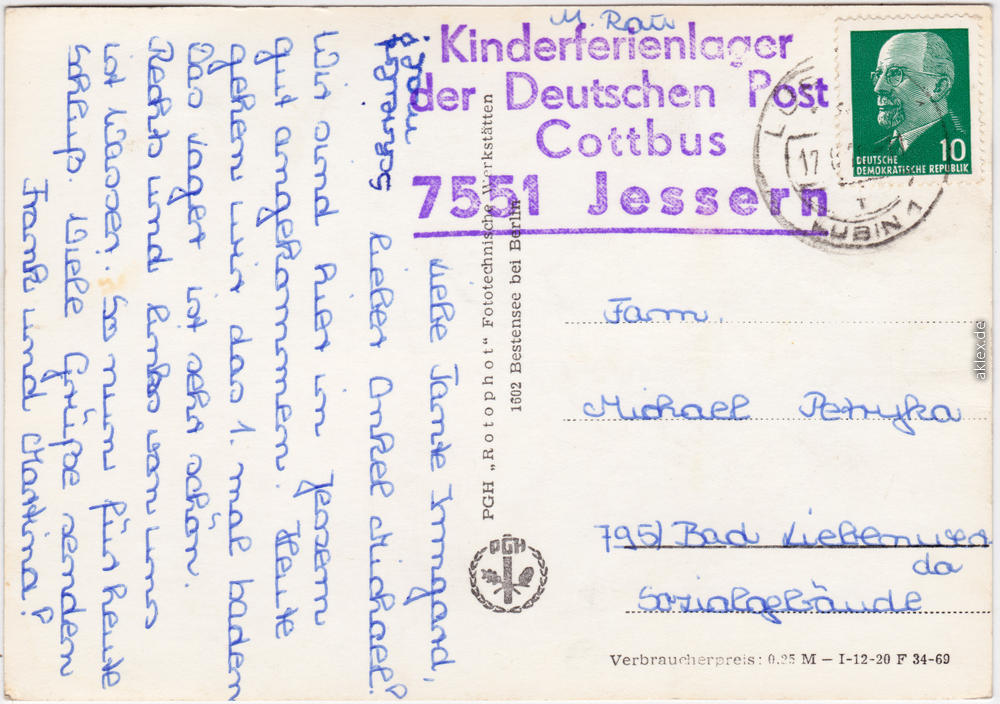 M. Rau
Kinderferienlager
der Deutschen Post
Cottbus
7551 Jessern
DEUTSCHE
DEMOKRATISCHE REPUBLIK
10
17
LÜBBEN 1
Liebe Tante Irmgard,
lieber Onkel Michael!
Wir sind hier in Jessern
gut angekommen. Heute
gehen wir das 1. mal baden
Das Lager ist sehr schön.
Rechts und links von uns
ist Wasser. So nun für heute
Schluß. Viele Grüße senden
Frank und Martina!
PGH „Rotophot" Fototechnische Werkstätten
1602 Bestensee bei Berlin
PGH
Fam.
Michael Petryka
795) Bad Liebenwer
da
Sozialgebäude
Verbraucherpreis: 0.25 M – I-12-20 F 34-69
aklex.de